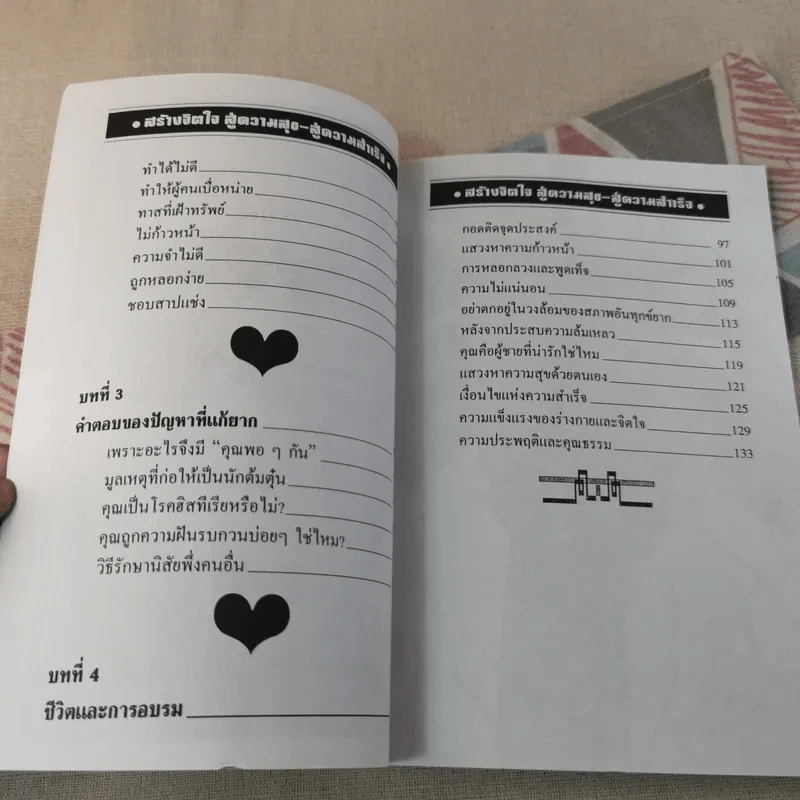 • สร้างจิตใจ สู่ความสุข-สู่ความสำเร็จ •
ทำได้ไม่ดี
ทำให้ผู้คนเบื่อหน่าย
ทาสที่เฝ้าทรัพย์
ไม่ก้าวหน้า
ความจำไม่ดี
ถูกหลอกง่าย
ชอบสาปแช่ง
บทที่ 3
คำตอบของปัญหาที่แก้ยาก
เพราะอะไรจึงมี “คุณพอ ๆ กัน”
มูลเหตุที่ก่อให้เป็นนักต้มตุ๋น
คุณเป็นโรคฮิสทีเรียหรือไม่?
คุณถูกความฝันรบกวนบ่อยๆ ใช่ไหม?
วิธีรักษานิสัยพึ่งคนอื่น
บทที่ 4
ชีวิตและการอบรม
• สร้างจิตใจ สู่ความสุข-สู่ความสำเร็จ •
กอดติดจุดประสงค์ 97
แสวงหาความก้าวหน้า 101
การหลอกลวงและพูดเท็จ 105
ความไม่แน่นอน 109
อย่าตกอยู่ในวงล้อมของสภาพอันทุกข์ยาก 113
หลังจากประสบความล้มเหลว 115
คุณคือผู้ชายที่น่ารักใช่ไหม 119
แสวงหาความสุขด้วยตนเอง 121
เงื่อนไขแห่งความสำเร็จ 125
ความแข็งแรงของร่างกายและจิตใจ 129
ความประพฤติและคุณธรรม 133